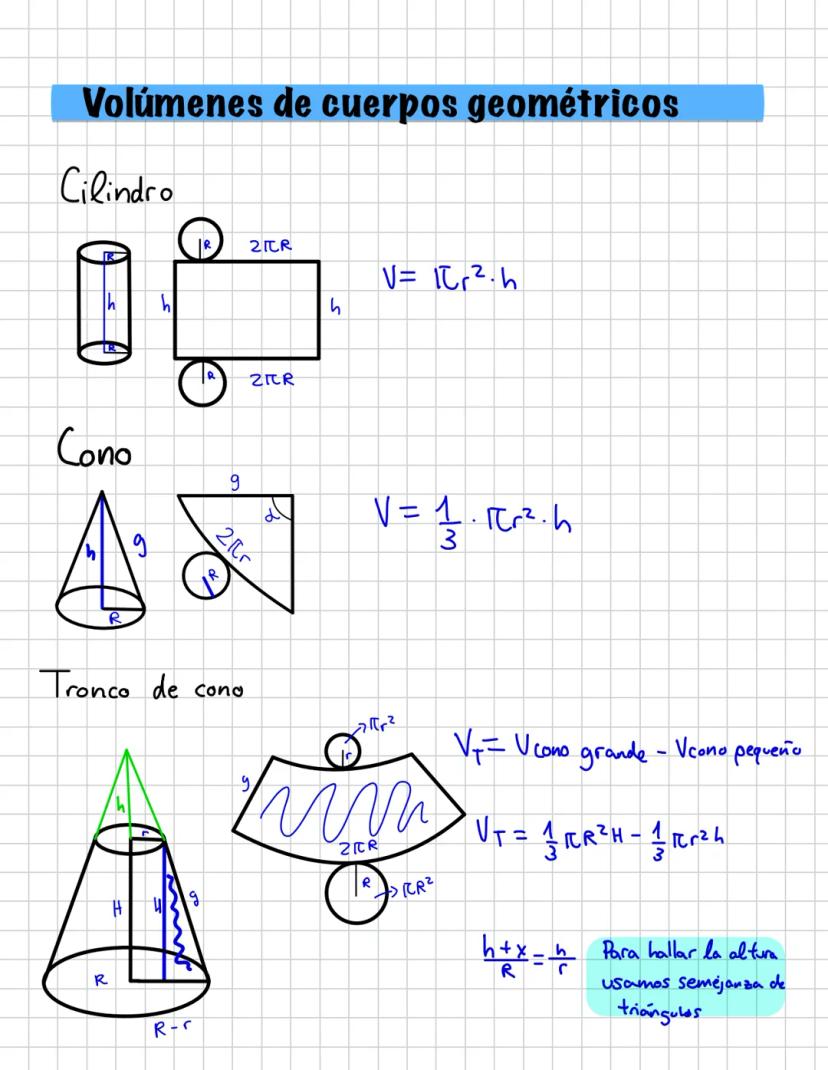 Volúmenes de cuerpos geométricos
Cilindro
R
h
R
R
2πR
h
h
R
2πR
V= πr²·h
Cono
h
g
R
g
α
2πr
R
V = 1/3 · πr²·h
Tronco de cono
h
r
H
H
g
R
R-r
πr²
r
g
2πR
R
πR²
V_T= Vcono grande - Vcono pequeño
V_T = 1/3 πR²H - 1/3 πr²h
h+x/R = h/r
Para hallar la altura
usamos semejanza de
triángulos